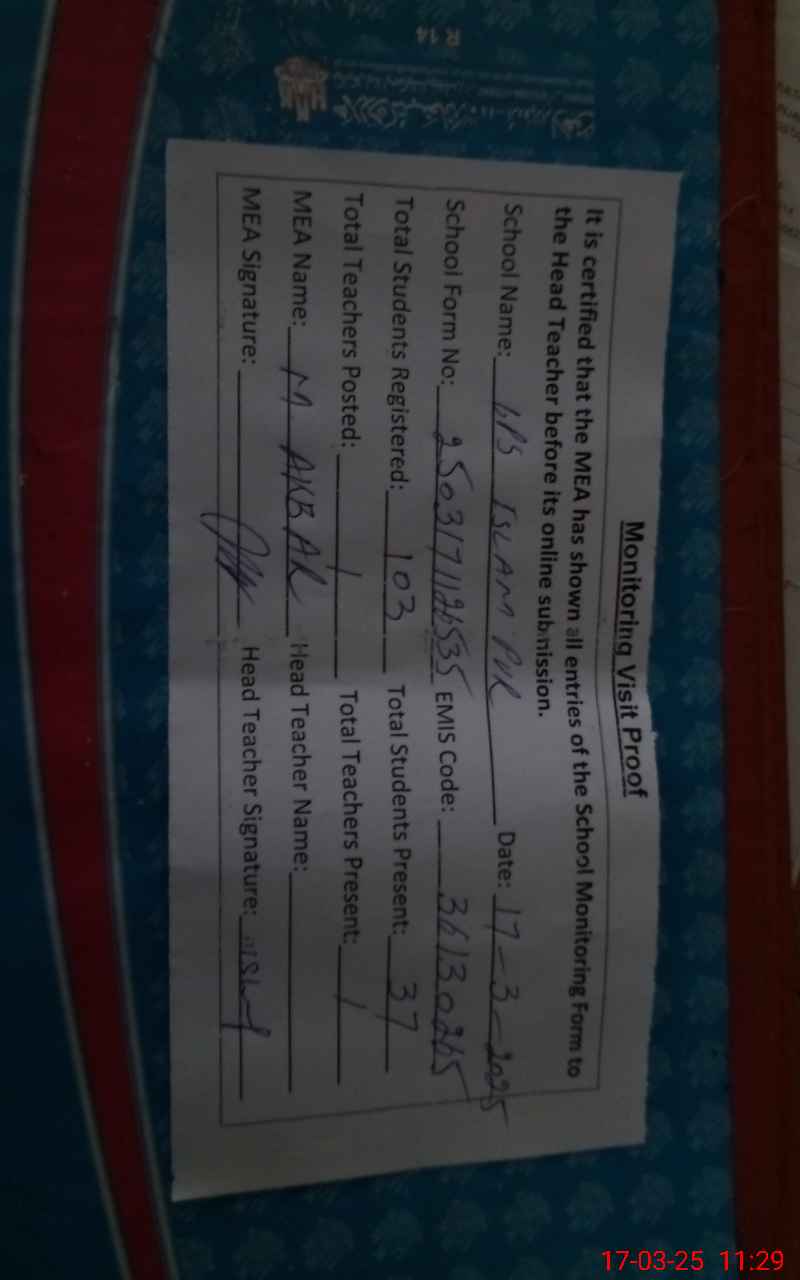 Monitoring Visit Proof
It is certified that the MEA has shown all entries of the School Monitoring Form to
the Head Teacher before its online submission.
School Name: GPS ISLAM PUR Date: 17-3-2025
School Form No: 2503171126535 EMIS Code: 36130265
Total Students Registered: 103 Total Students Present: 37
Total Teachers Posted: 1 Total Teachers Present: 1
MEA Name: M AKBAR Head Teacher Name:
MEA Signature: Head Teacher Signature:
R 14
17-03-25 11:29